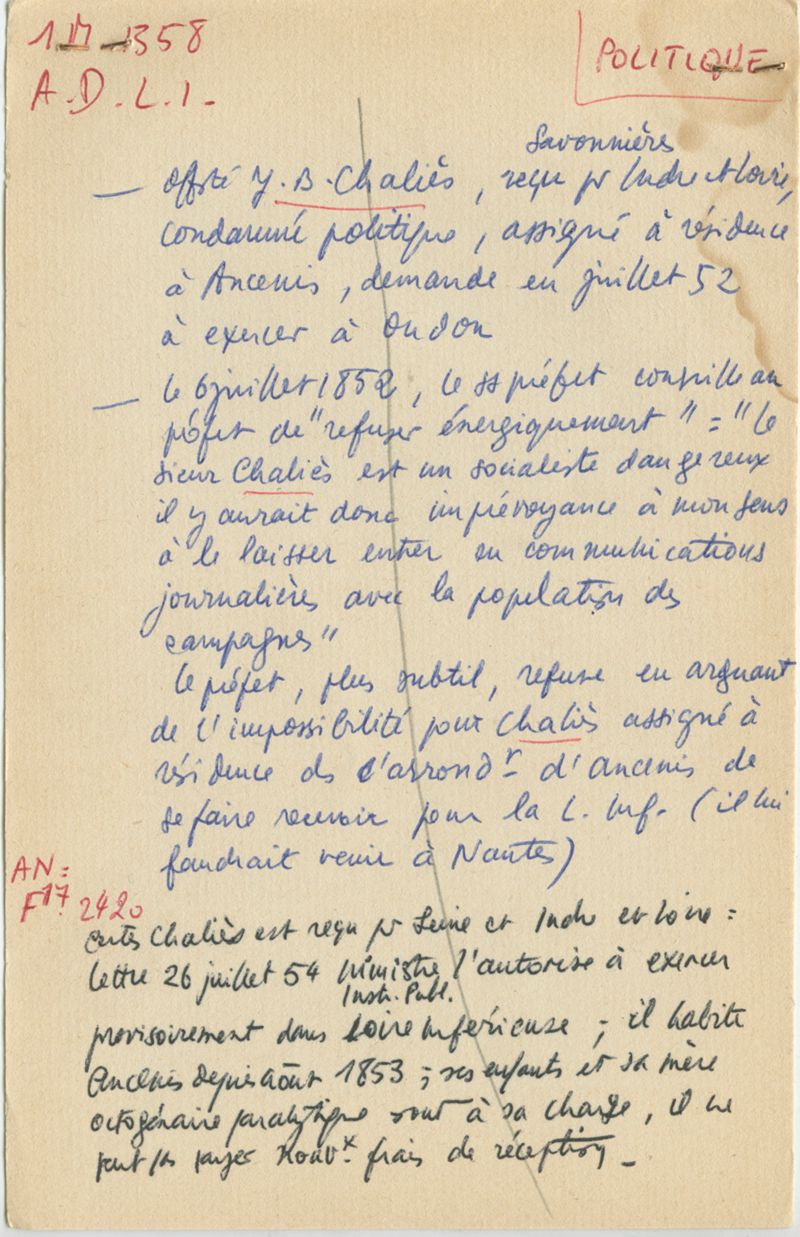 1 M 1358
A.D.L.I.
POLITIQUE
Savonnières
— Offté J.B. Chaliès, reçu pr Indre et Loire,
condamné politique, assigné à résidence
à Ancenis, demande en juillet 52
à exercer à Oudon
— Le 6 juillet 1852, le ss préfet conseille au
préfet de "refuser énergiquement" = "le
sieur Chaliès est un socialiste dangereux
il y aurait donc imprévoyance à mon sens
à le laisser entrer en communications
journalières avec la population des
campagnes"
Le préfet, plus subtil, refuse en arguant
de l'impossibilité pour Chaliès assigné à
résidence ds l'arrondt d'Ancenis de
se faire recevoir pour la L. Inf. (il lui
faudrait venir à Nantes)
AN:
F17. 2420
Chaliès est reçu pr Seine et Indre et Loire =
lettre 26 juillet 54 Ministre l'autorise à exercer
Instr. Publ.
provisoirement dans Loire Inférieure ; il habite
Ancenis depuis août 1853 ; ses enfants et sa mère
octogénaire paralytique sont à sa charge, il ne
peut pas payer nouvx frais de réception _